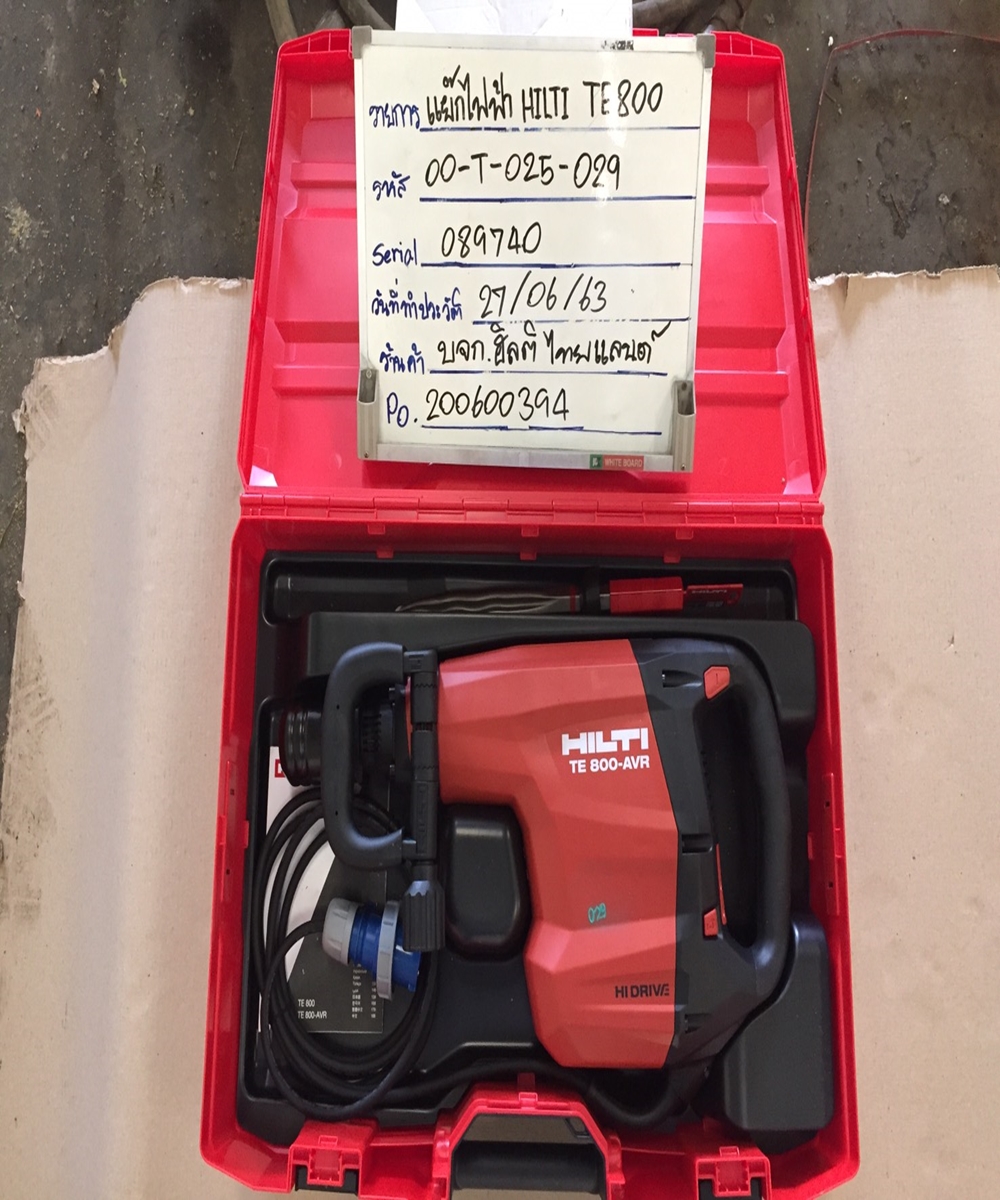 รายการ แย๊กไฟฟ้า HILTI TE800
รหัส 00-T-025-029
Serial 089740
วันที่ทำประวัติ 27/06/63
ร้านค้า บจก.ฮิลติ ไทยแลนด์
PO. 200600394
WHITE BOARD
HILTI
TE 800-AVR
029
HIDRIVE
TE 800
TE 800-AVR